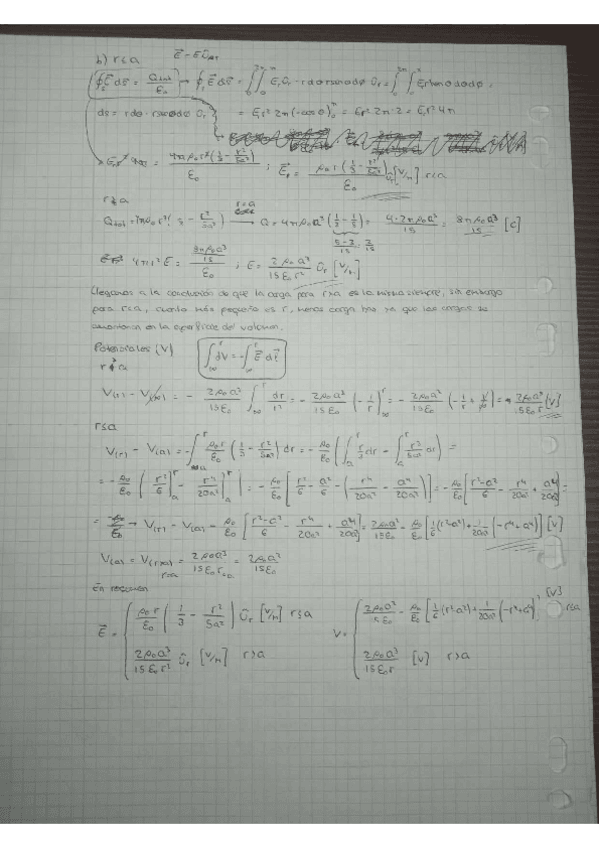 b) r<a   E⃗ = E Û_r
∮ E⃗ ds⃗ = Qtot/ε₀ → ∮ E⃗ ds⃗ = ∫₀^2π ∫₀^π E_r Û_r · r dθ r senθ dφ Û_r = ∫₀^2π ∫₀^π E_r r² senθ dθ dφ =
ds = r dθ · r senθ dφ Û_r = E_r r² 2π (-cos θ)₀^π = E r² 2π · 2 = E_r r² 4π
E_r r² 4π = 4π ρ₀ r³ (1/3 - r²/5a²) / ε₀ ; E⃗_r = ρ₀ r (1/3 - r²/5a²) / ε₀ Û_r [V/m] r<a
r≥a
Qtot = 4π ρ₀ r³ (1/3 - r²/5a²) —r=a→ Q = 4π ρ₀ a³ (1/3 - 1/5) = 4·2π ρ₀ a³ / 15 = 8π ρ₀ a³ / 15 [C]
5-3/15 = 2/15
4π r² E = 8π ρ₀ a³/15 / ε₀ ; E = 2 ρ₀ a³ / 15 ε₀ r² Û_r [V/m]
Llegamos a la conclusión de que la carga para r>a es la misma siempre, sin embargo
para r<a, cuanto más pequeño es r, menos carga hay ya que las cargas se
encuentran en la superficie del volumen.
Potenciales (V)   ∫_∞^r dV = -∫_∞^r E⃗ dl⃗
r ≥ a
V(r) - V(∞) = - 2ρ₀a³/15ε₀ ∫_∞^r dr/r² = - 2ρ₀a³/15ε₀ (-1/r)_∞^r = - 2ρ₀a³/15ε₀ (-1/r + 1/∞) = 2ρ₀a³/15ε₀r [V]
r≤a
V(r) - V(a) = -∫_a^r ρ₀r/ε₀ (1/3 - r²/5a²) dr = - ρ₀/ε₀ (∫_a^r r/3 dr - ∫_a^r r³/5a² dr) =
= - ρ₀/ε₀ (r²/6 |_a^r - r⁴/20a² |_a^r) = - ρ₀/ε₀ [r²/6 - a²/6 - (r⁴/20a² - a⁴/20a²)] = - ρ₀/ε₀ [r²-a²/6 - r⁴/20a² + a⁴/20a²] =
→ V(r) = V(a) - ρ₀/ε₀ [r²-a²/6 - r⁴/20a² + a⁴/20a²] = 2ρ₀a²/15ε₀ - ρ₀/ε₀ [1/6 (r²-a²) + 1/20a² (-r⁴+a⁴)] [V]
V(a) = V(r>a) r=a = 2ρ₀a³/15ε₀r r=a = 2ρ₀a²/15ε₀
En resumen
E⃗ = { ρ₀r/ε₀ (1/3 - r²/5a²) Û_r [V/m] r≤a   V = { 2ρ₀a²/15ε₀ - ρ₀/ε₀ [1/6 (r²-a²) + 1/20a² (-r⁴+a⁴)] [V] r≤a
2ρ₀a³/15ε₀r² Û_r [V/m] r>a   2ρ₀a³/15ε₀r [V] r>a